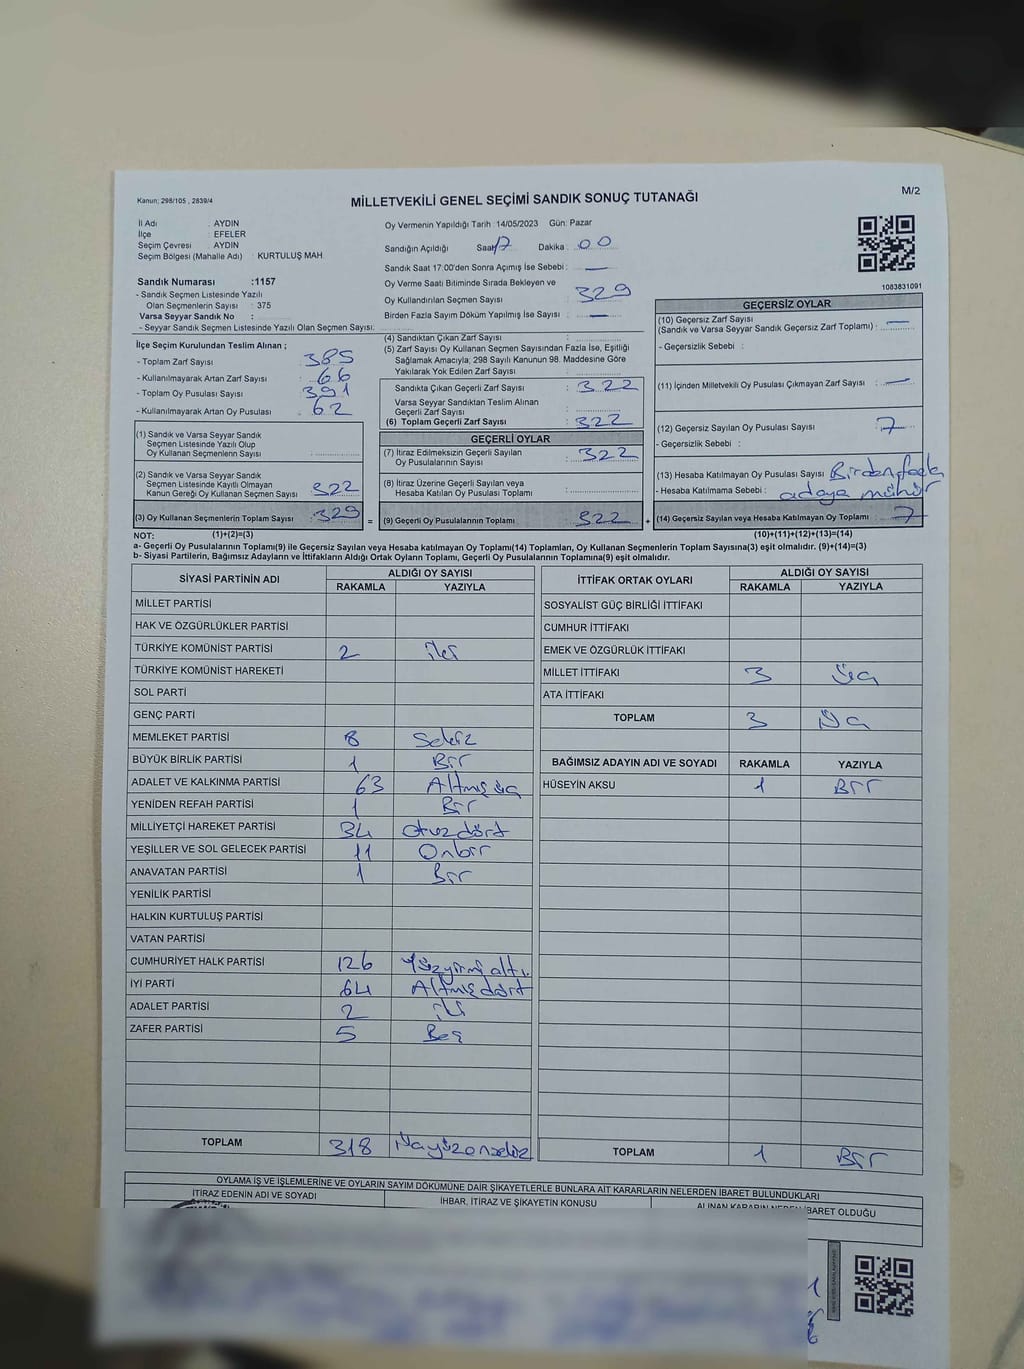 Kanun; 298/105 , 2839/4
MİLLETVEKİLİ GENEL SEÇİMİ SANDIK SONUÇ TUTANAĞI
M/2
İl Adı : AYDIN
İlçe : EFELER
Seçim Çevresi : AYDIN
Seçim Bölgesi (Mahalle Adı) : KURTULUŞ MAH.
Oy Vermenin Yapıldığı Tarih :14/05/2023 Gün: Pazar
Sandığın Açıldığı Saat 17 Dakika : 00
Sandık Saat 17:00'den Sonra Açımış İse Sebebi : —
Oy Verme Saati Bitiminde Sırada Bekleyen ve
Oy Kullandırılan Seçmen Sayısı : 329
Birden Fazla Sayım Döküm Yapılmış İse Sayısı : —
1083831091
Sandık Numarası :1157
- Sandık Seçmen Listesinde Yazılı
Olan Seçmenlerin Sayısı : 375
Varsa Seyyar Sandık No :
- Seyyar Sandık Seçmen Listesinde Yazılı Olan Seçmen Sayısı:
İlçe Seçim Kurulundan Teslim Alınan ;
- Toplam Zarf Sayısı : 385
- Kullanılmayarak Artan Zarf Sayısı : 66
- Toplam Oy Pusulası Sayısı : 391
- Kullanılmayarak Artan Oy Pusulası : 62
(1) Sandık ve Varsa Seyyar Sandık
Seçmen Listesinde Yazılı Olup
Oy Kullanan Seçmenlerin Sayısı :
(2) Sandık ve Varsa Seyyar Sandık
Seçmen Listesinde Kayıtlı Olmayan
Kanun Gereği Oy Kullanan Seçmen Sayısı : 322
(3) Oy Kullanan Seçmenlerin Toplam Sayısı : 329
(4) Sandıktan Çıkan Zarf Sayısı :
(5) Zarf Sayısı Oy Kullanan Seçmen Sayısından Fazla İse, Eşitliği
Sağlamak Amacıyla; 298 Sayılı Kanunun 98. Maddesine Göre
Yakılarak Yok Edilen Zarf Sayısı :
Sandıkta Çıkan Geçerli Zarf Sayısı : 322
Varsa Seyyar Sandıktan Teslim Alınan
Geçerli Zarf Sayısı :
(6) Toplam Geçerli Zarf Sayısı : 322
GEÇERLİ OYLAR
(7) İtiraz Edilmeksizin Geçerli Sayılan
Oy Pusulalarının Sayısı : 322
(8) İtiraz Üzerine Geçerli Sayılan veya
Hesaba Katılan Oy Pusulası Toplamı :
= (9) Geçerli Oy Pusulalarının Toplamı : 322 +
GEÇERSİZ OYLAR
(10) Geçersiz Zarf Sayısı
(Sandık ve Varsa Seyyar Sandık Geçersiz Zarf Toplamı) : —
- Geçersizlik Sebebi :
(11) İçinden Milletvekili Oy Pusulası Çıkmayan Zarf Sayısı : —
(12) Geçersiz Sayılan Oy Pusulası Sayısı : 7
- Geçersizlik Sebebi :
(13) Hesaba Katılmayan Oy Pusulası Sayısı : Birden fazla
- Hesaba Katılmama Sebebi : adaya mühür
(14) Geçersiz Sayılan veya Hesaba Katılmayan Oy Toplamı : 7
NOT: (1)+(2)=(3) (10)+(11)+(12)+(13)=(14)
a- Geçerli Oy Pusulalarının Toplamı(9) ile Geçersiz Sayılan veya Hesaba katılmayan Oy Toplamı(14) Toplamları, Oy Kullanan Seçmenlerin Toplam Sayısına(3) eşit olmalıdır. (9)+(14)=(3)
b- Siyasi Partilerin, Bağımsız Adayların ve İttifakların Aldığı Ortak Oyların Toplamı, Geçerli Oy Pusulalarının Toplamına(9) eşit olmalıdır.
SİYASİ PARTİNİN ADI ALDIĞI OY SAYISI
RAKAMLA YAZIYLA
MİLLET PARTİSİ
HAK VE ÖZGÜRLÜKLER PARTİSİ
TÜRKİYE KOMÜNİST PARTİSİ 2 iki
TÜRKİYE KOMÜNİST HAREKETİ
SOL PARTİ
GENÇ PARTİ
MEMLEKET PARTİSİ 8 Sekiz
BÜYÜK BİRLİK PARTİSİ 1 Bir
ADALET VE KALKINMA PARTİSİ 63 Altmış üç
YENİDEN REFAH PARTİSİ 1 Bir
MİLLİYETÇİ HAREKET PARTİSİ 34 Otuzdört
YEŞİLLER VE SOL GELECEK PARTİSİ 11 Onbir
ANAVATAN PARTİSİ 1 Bir
YENİLİK PARTİSİ
HALKIN KURTULUŞ PARTİSİ
VATAN PARTİSİ
CUMHURİYET HALK PARTİSİ 126 Yüzyirmi altı
İYİ PARTİ 64 Altmış dört
ADALET PARTİSİ 2 iki
ZAFER PARTİSİ 5 Beş
TOPLAM 318 Üçyüzonsekiz
İTTİFAK ORTAK OYLARI ALDIĞI OY SAYISI
RAKAMLA YAZIYLA
SOSYALİST GÜÇ BİRLİĞİ İTTİFAKI
CUMHUR İTTİFAKI
EMEK VE ÖZGÜRLÜK İTTİFAKI
MİLLET İTTİFAKI 3 Üç
ATA İTTİFAKI
TOPLAM 3 Üç
BAĞIMSIZ ADAYIN ADI VE SOYADI RAKAMLA YAZIYLA
HÜSEYİN AKSU 1 Bir
TOPLAM 1 Bir
OYLAMA İŞ VE İŞLEMLERİNE VE OYLARIN SAYIM DÖKÜMÜNE DAİR ŞİKAYETLERLE BUNLARA AİT KARARLARIN NELERDEN İBARET BULUNDUKLARI
İTİRAZ EDENİN ADI VE SOYADI İHBAR, İTİRAZ VE ŞİKAYETİN KONUSU ALINAN KARARIN NEDEN İBARET OLDUĞU